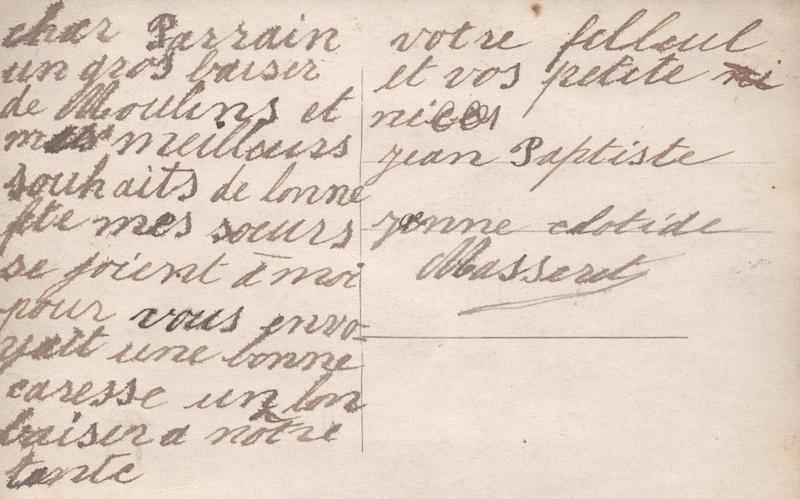 cher Parrain
un gros baiser
de Moulins et
mes meilleurs
souhaits de bonne
fête mes sœurs
se joient à moi
pour vous envo-
yait une bonne
caresse un bon
baiser a nôtre
tante
votre filleul
et vos petite ni
nices
jean Baptiste
yonne clotide
Masseret